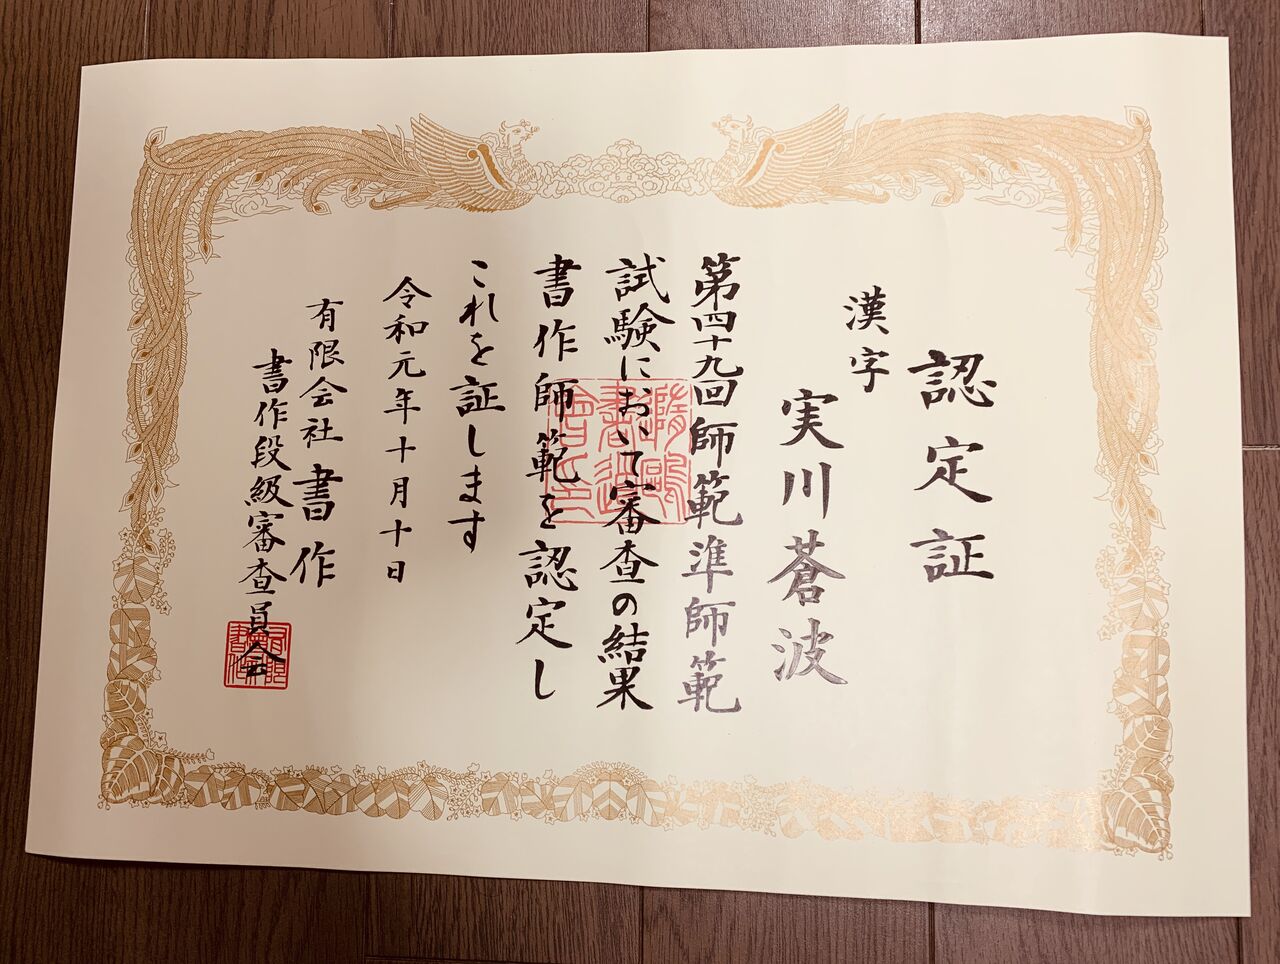 認定証
漢字
実川蒼波
第四十九回師範準師範
試験において審査の結果
書作師範を認定し
これを証します
令和元年十月十日
有限会社書作
書作段級審査員会